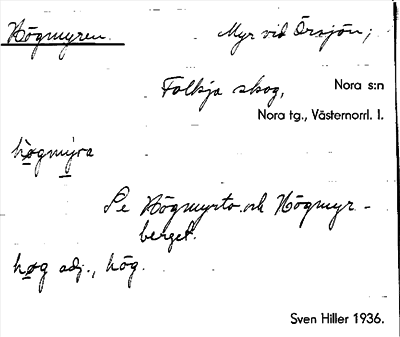 Högmyren. Myr vid Örsjön;
Folkja skog, Nora s:n
Nora tg., Västernorrl. l.
høgmyra
Se Högmyrto. och Högmyr-
berget.
høg adj., hög.
Sven Hiller 1936.